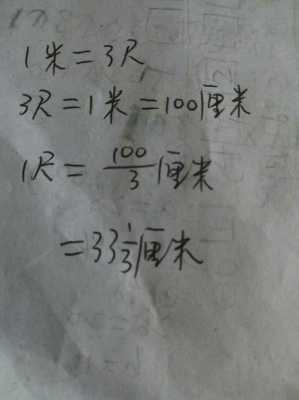 1米=3尺
3尺=1米=100厘米
1尺=100/3厘米
=33 1/3厘米